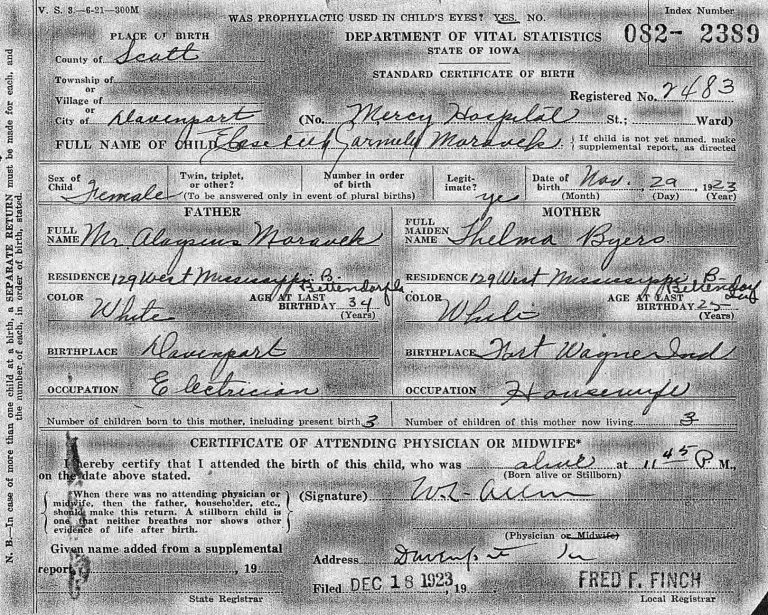 V. S. 3—6-21—300M
WAS PROPHYLACTIC USED IN CHILD'S EYES? YES. NO.
Index Number
PLACE OF BIRTH
DEPARTMENT OF VITAL STATISTICS
082- 2389
County of Scott
STATE OF IOWA
STANDARD CERTIFICATE OF BIRTH
Township of
or
Registered No. 2483
Village of
or
City of Davenport (No. Mercy Hospital St.; Ward)
FULL NAME OF CHILD Moravek { If child is not yet named, make
supplemental report, as directed
Sex of Child Female
Twin, triplet, or other?
Number in order of birth
(To be answered only in event of plural births)
Legitimate? yes
Date of birth Nov. 29, 1923
(Month) (Day) (Year)
FATHER
FULL NAME Mr. Aloysius Moravek
RESIDENCE 129 West Mississippi B.
Bettendorf Ia
COLOR White
AGE AT LAST BIRTHDAY 34
(Years)
BIRTHPLACE Davenport
OCCUPATION Electrician
MOTHER
FULL MAIDEN NAME Thelma Byers
RESIDENCE 129 West Mississippi B
Bettendorf
COLOR White
AGE AT LAST BIRTHDAY
(Years)
BIRTHPLACE Fort Wayne Ind
OCCUPATION Housewife
Number of children born to this mother, including present birth 3
Number of children of this mother now living 3
CERTIFICATE OF ATTENDING PHYSICIAN OR MIDWIFE*
I hereby certify that I attended the birth of this child, who was alive at 11 45 P M.,
(Born alive or Stillborn)
on the date above stated.
{ When there was no attending physician or
midwife, then the father, householder, etc.,
should make this return. A stillborn child is
one that neither breathes nor shows other
evidence of life after birth. }
(Signature) W. L. Allen
(Physician or Midwife)
Given name added from a supplemental
report , 19
Address Davenport Ia
Filed DEC 18 1923, 19
FRED F. FINCH
State Registrar
Local Registrar
N. B.—In case of more than one child at a birth, a SEPARATE RETURN must be made for each, and
the number of each, in order of birth, stated.